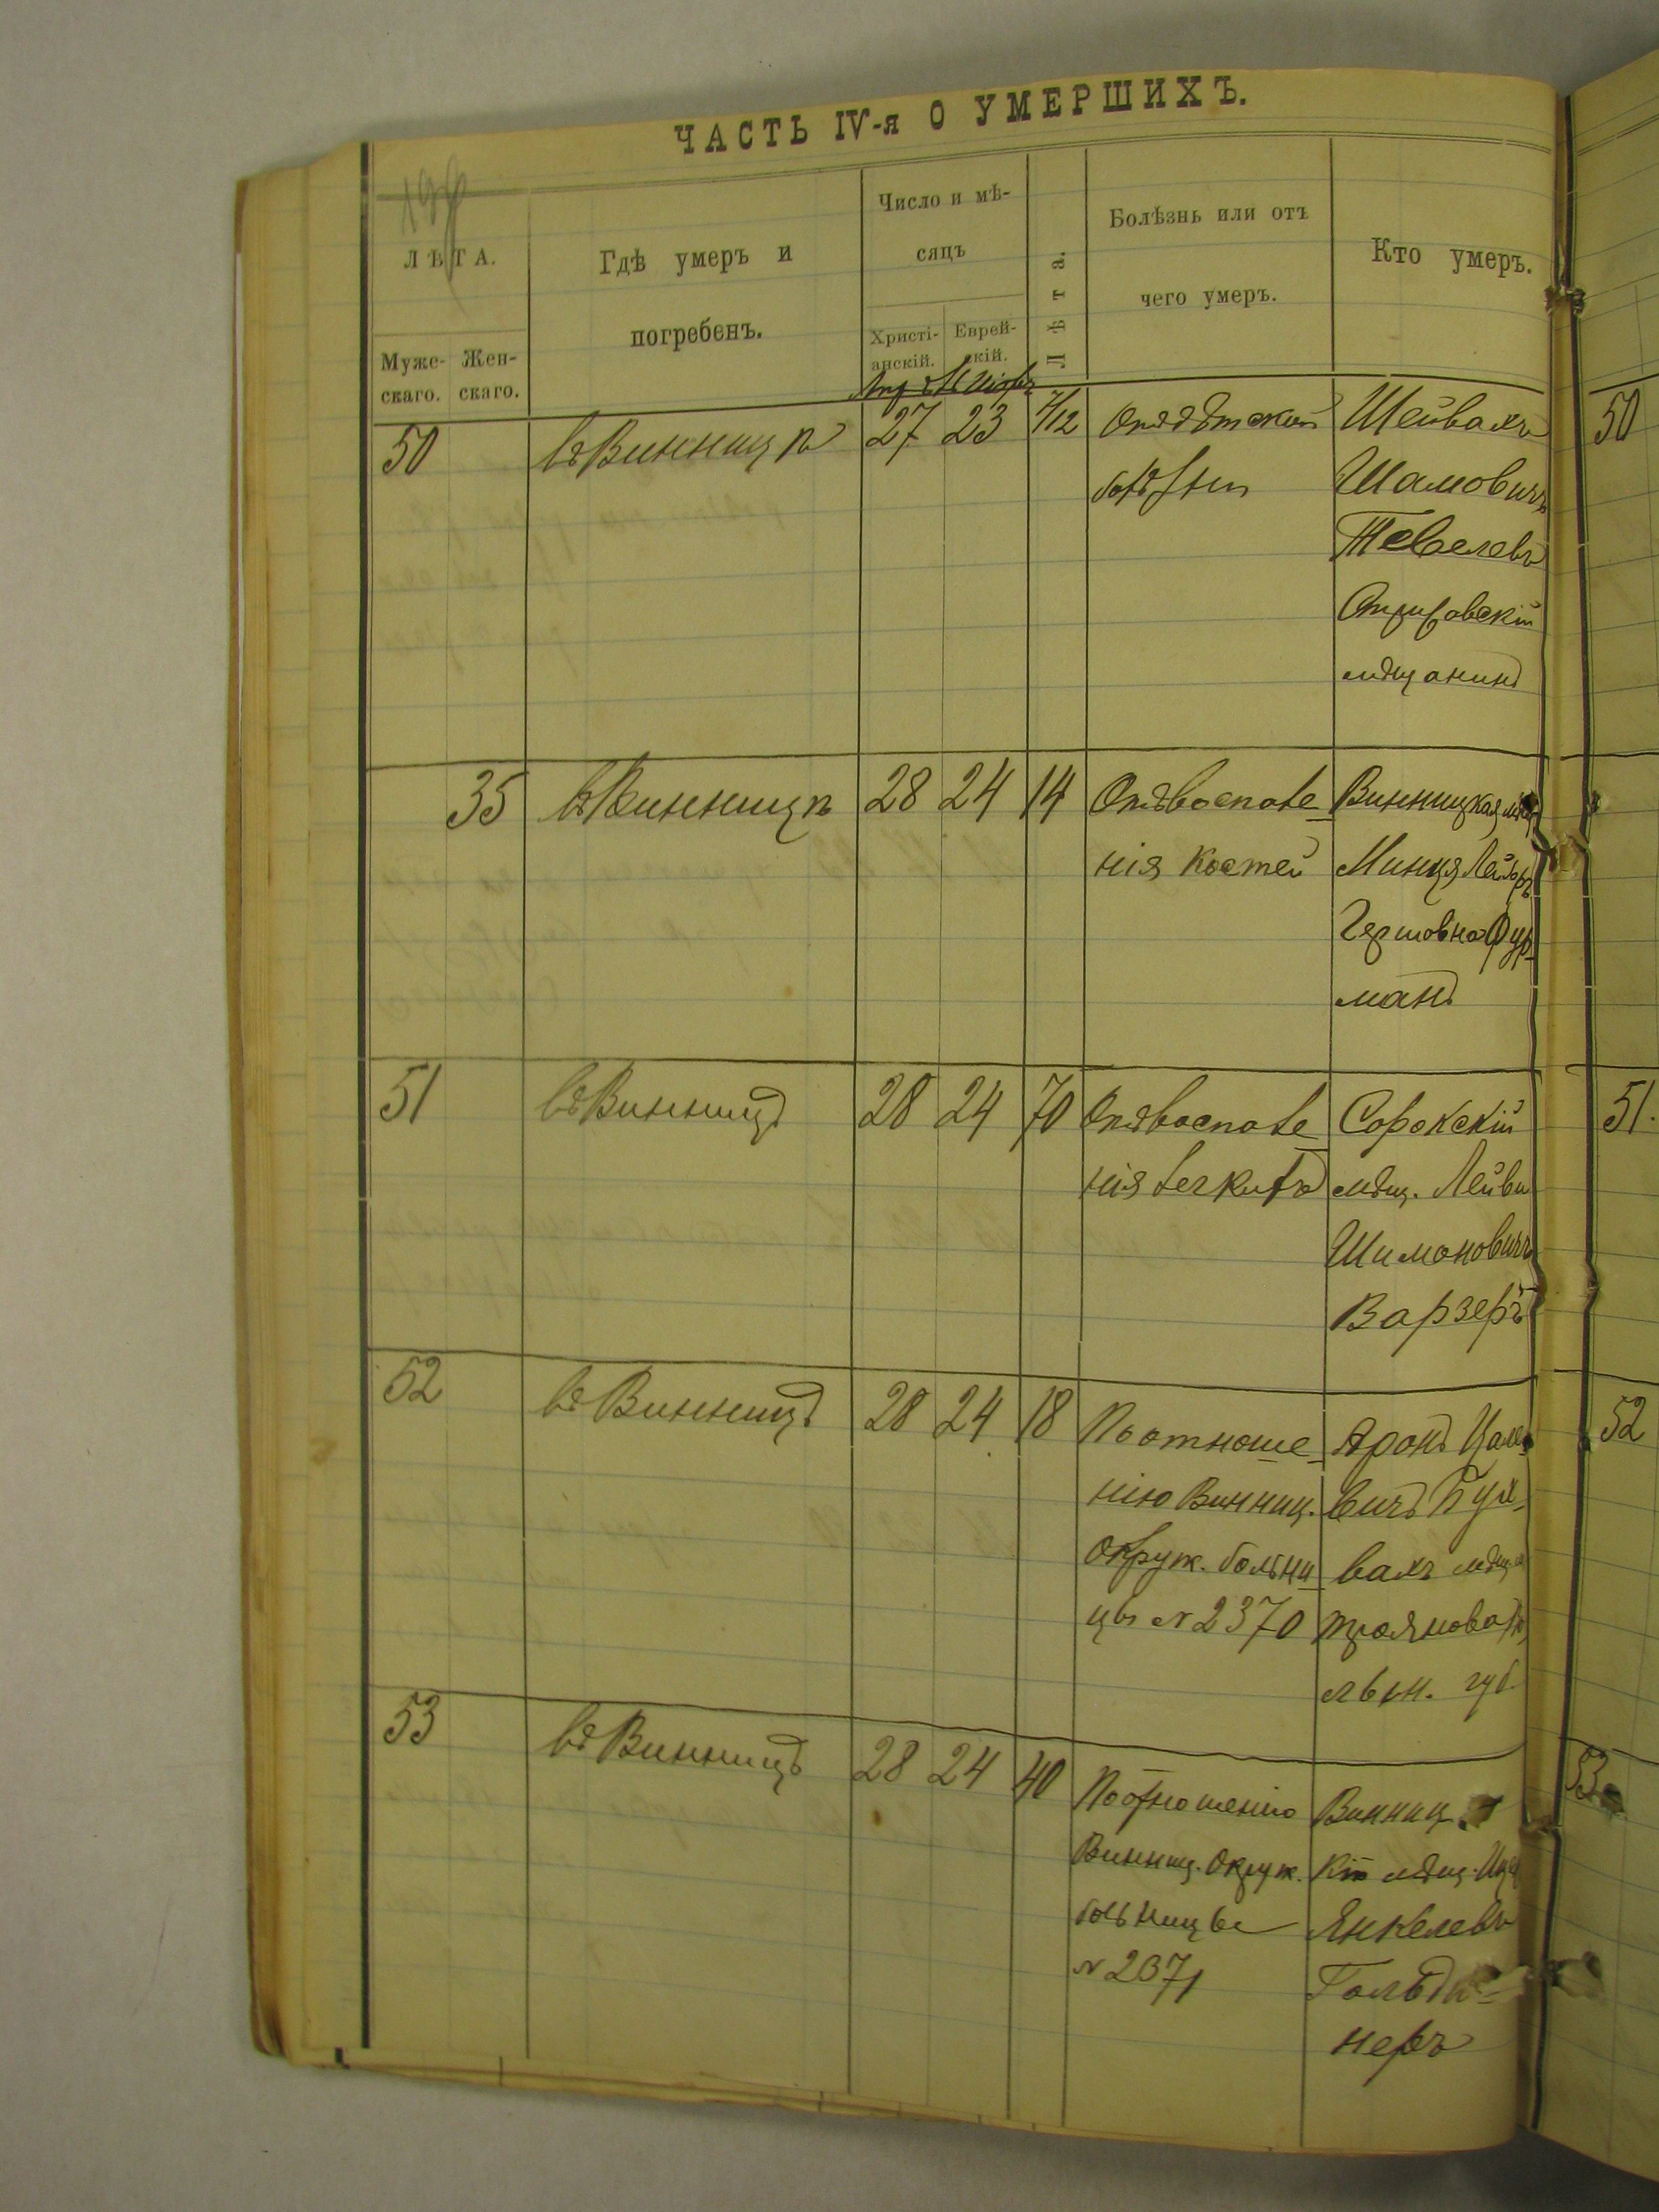 ЧАСТЬ IV-я О УМЕРШИХЪ.
ЛѢТА.
Муже-скаго.
Жен-скаго.
Гдѣ умеръ и
погребенъ.
Число и мѣ-
сяцъ
Христі-анскій.
Еврей-скій.
Лѣта.
Болѣзнь или отъ
чего умеръ.
Кто умеръ.
50 въ Винницѣ 27 23 7/12 Отъ дѣтской Шейвахъ 50
болѣзни Шамовичъ
Тевелевъ
мѣщанинъ
35 въ Винницѣ 28 24 14 Отъ воспале- Винницкая
нія костей Минця
Гершовна Фур-
манъ
51 въ Винницѣ 28 24 70 Отъ воспале- Сорокскій 51.
нія легкихъ мѣщ. Лейви
Шимоновичъ
Варзеръ
52 въ Винницѣ 28 24 18 По отноше- Аронъ 52
нію Винниц. вичъ
Окруж. больни- мѣщ.
цы № 2370
губ.
53 въ Винницѣ 28 24 40 По отношенію Винниц 53
Винниц. Окруж. кій мѣщ.
больницы Янкелевъ
№ 2371
неръ